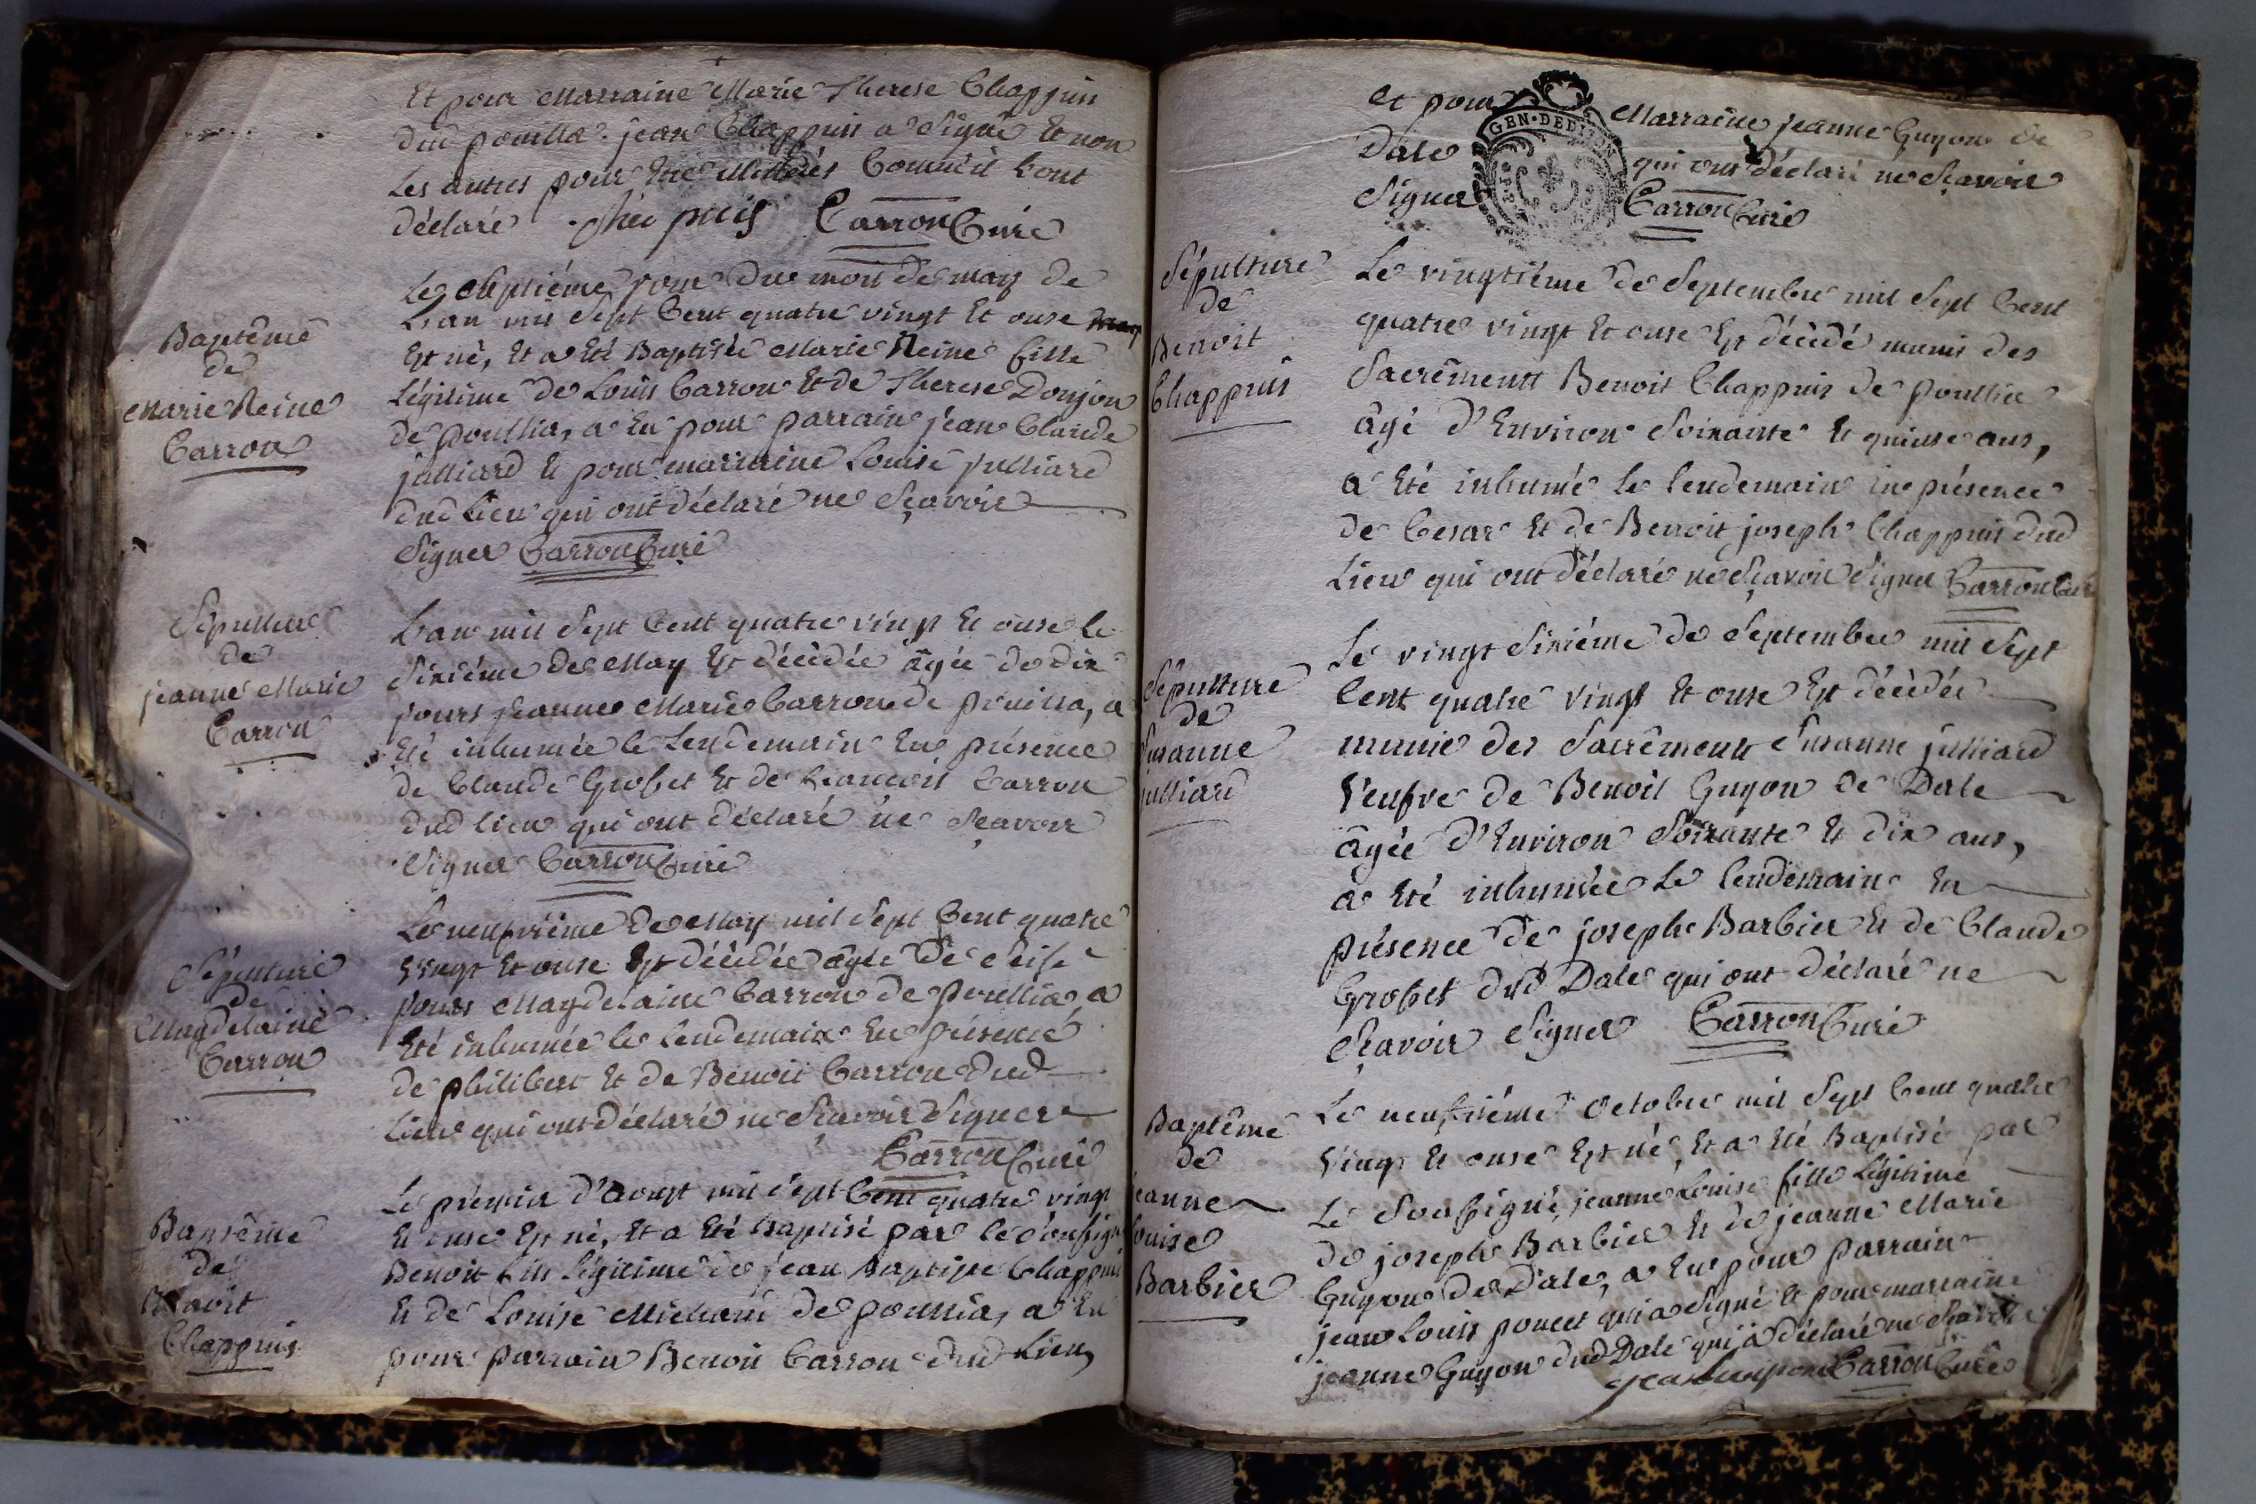 Et pour Marraine Marie Therese Chappuis
dud pouilla. jean Chappuis a signé Et non
Les autres pour Etre illitérés Comme il L'ont
déclaré. Carron Curé
Baptême
de
Marie Reine
Carron
Le septiéme jour du mois de may de
L'an mil sept Cent quatre vingt Et onse
Est né, Et a Eté Baptisée Marie Reine fille
Légitime de Louis Carron Et de Therese Donjon
de pouillia, a Eu pour parrain jean Claude
julliard Et pour marraine Louise julliard
dud Lieu qui ont déclaré ne sçavoir
signer Carron Curé
Sépulture
de
jeanne Marie
Carron
L'an mil sept Cent quatre vingt Et onse le
sixiéme de May Est décédée âgée de dix
jours jeanne Marie Carron de pouillia, a
Eté inhumée le Lendemain En présence
de Claude Grosset Et de francois Carron
dud lieu qui ont déclaré ne sçavoir
signer Carron Curé
Sépulture
de
Magdelaine
Carron
Le neufviême de May mil sept Cent quatre
vingt Et onse Est décédée âgée de seise
jours Magdelaine Carron de pouillia a
Eté inhumée le lendemain En présence
de philibert Et de Benoit Carron dud
Lieu qui ont déclaré ne sçavoir signer
Carron Curé
Baptême
de
Benoit
Chappuis
Le premier d'aoust mil sept Cent quatre vingt
Et onse Est né, Et a Eté baptisé par le soussigné
Benoit fils légitime de jean Baptiste Chappuis
Et de Louise Michaud de pouillia, a Eu
pour parrain Benoit Carron dud Lieu,
et pour Marraine jeanne Guyon de
Dale qui ont déclaré ne sçavoir
signer Carron Curé
GEN·DE DIJON
Sépulture
de
Benoit
Chappuis
Le vingtiéme de septembre mil sept Cent
quatre vingt Et onse Est décédé munis des
sacrêments Benoit Chappuis de pouillia
âgé d'Environ soixante Et quinse ans,
a Eté inhumé le lendemain En présence
de Cesar Et de Benoit joseph Chappuis dud
Lieu qui ont déclaré ne sçavoir signer Carron Curé
Sépulture
de
Susanne
julliard
Le vingt sixiéme de septembre mil sept
Cent quatre vingt Et onse Est décédée
munie des sacrêments Susanne julliard
Veufve de Benoit Guyon de Dale
âgée d'Environ soixante Et dix ans,
a Eté inhumée Le lendemain En
présence de joseph Barbier Et de Claude
Grosset dud Dale qui ont déclaré ne
sçavoir signer Carron Curé
Baptême
de
jeanne
Louise
Barbier
Le neufviéme octobre mil sept Cent quatre
vingt Et onse Est né, Et a Eté Baptisé par
Le soussigné, jeanne Louise fille Légitime
de joseph Barbier Et de jeanne Marie
Guyon de Dale, a Eu pour parrain
jean Louis poncet qui a signé Et pour marraine
jeanne Guyon dud Dale qui a déclaré ne sçavoir
Carron Curé